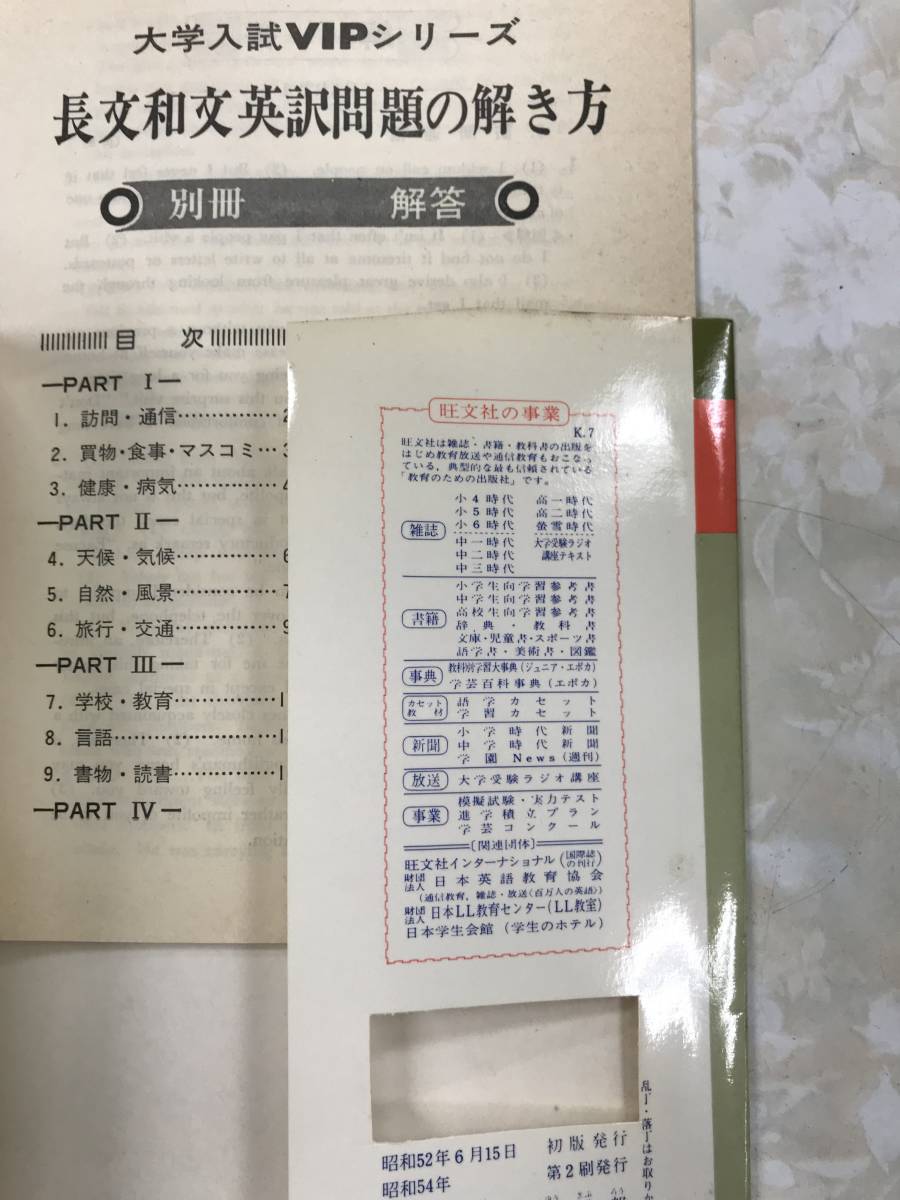 大学入試VIPシリーズ
長文和文英訳問題の解き方
別冊 解答
目 次
PART Ⅰ
1. 訪問・通信 2
2. 買物・食事・マスコミ 3
3. 健康・病気 4
PART Ⅱ
4. 天候・気候 6
5. 自然・風景 7
6. 旅行・交通 9
PART Ⅲ
7. 学校・教育 1
8. 言語 1
9. 書物・読書 1
PART Ⅳ
旺文社の事業
K.7
旺文社は雑誌・書籍・教科書の出版を
はじめ教育放送や通信教育もおこなっ
ている，典型的な最も信頼されている
「教育のための出版社」です。
雑誌
小4時代 高一時代
小5時代 高二時代
小6時代 螢雪時代
中一時代 大学受験ラジオ
中二時代 講座テキスト
中三時代
書籍
小学生向学習参考書
中学生向学習参考書
高校生向学習参考書
辞典・教科書
文庫・児童書・スポーツ書
語学書・美術書・図鑑
事典
教科別学習大事典（ジュニア・エポカ）
学芸百科事典（エポカ）
カセット教材
語学カセット
学習カセット
新聞
小学時代新聞
中学時代新聞
学園News（週刊）
放送 大学受験ラジオ講座
事業
模擬試験・実力テスト
進学積立プラン
学芸コンクール
〔関連団体〕
旺文社インターナショナル（国際誌の刊行）
財団法人 日本英語教育協会
（通信教育，雑誌・放送〈百万人の英語〉）
財団法人 日本LL教育センター（LL教室）
日本学生会館（学生のホテル）
昭和52年6月15日 初版発行
昭和54年 第2刷発行
乱丁・落丁はお取りか